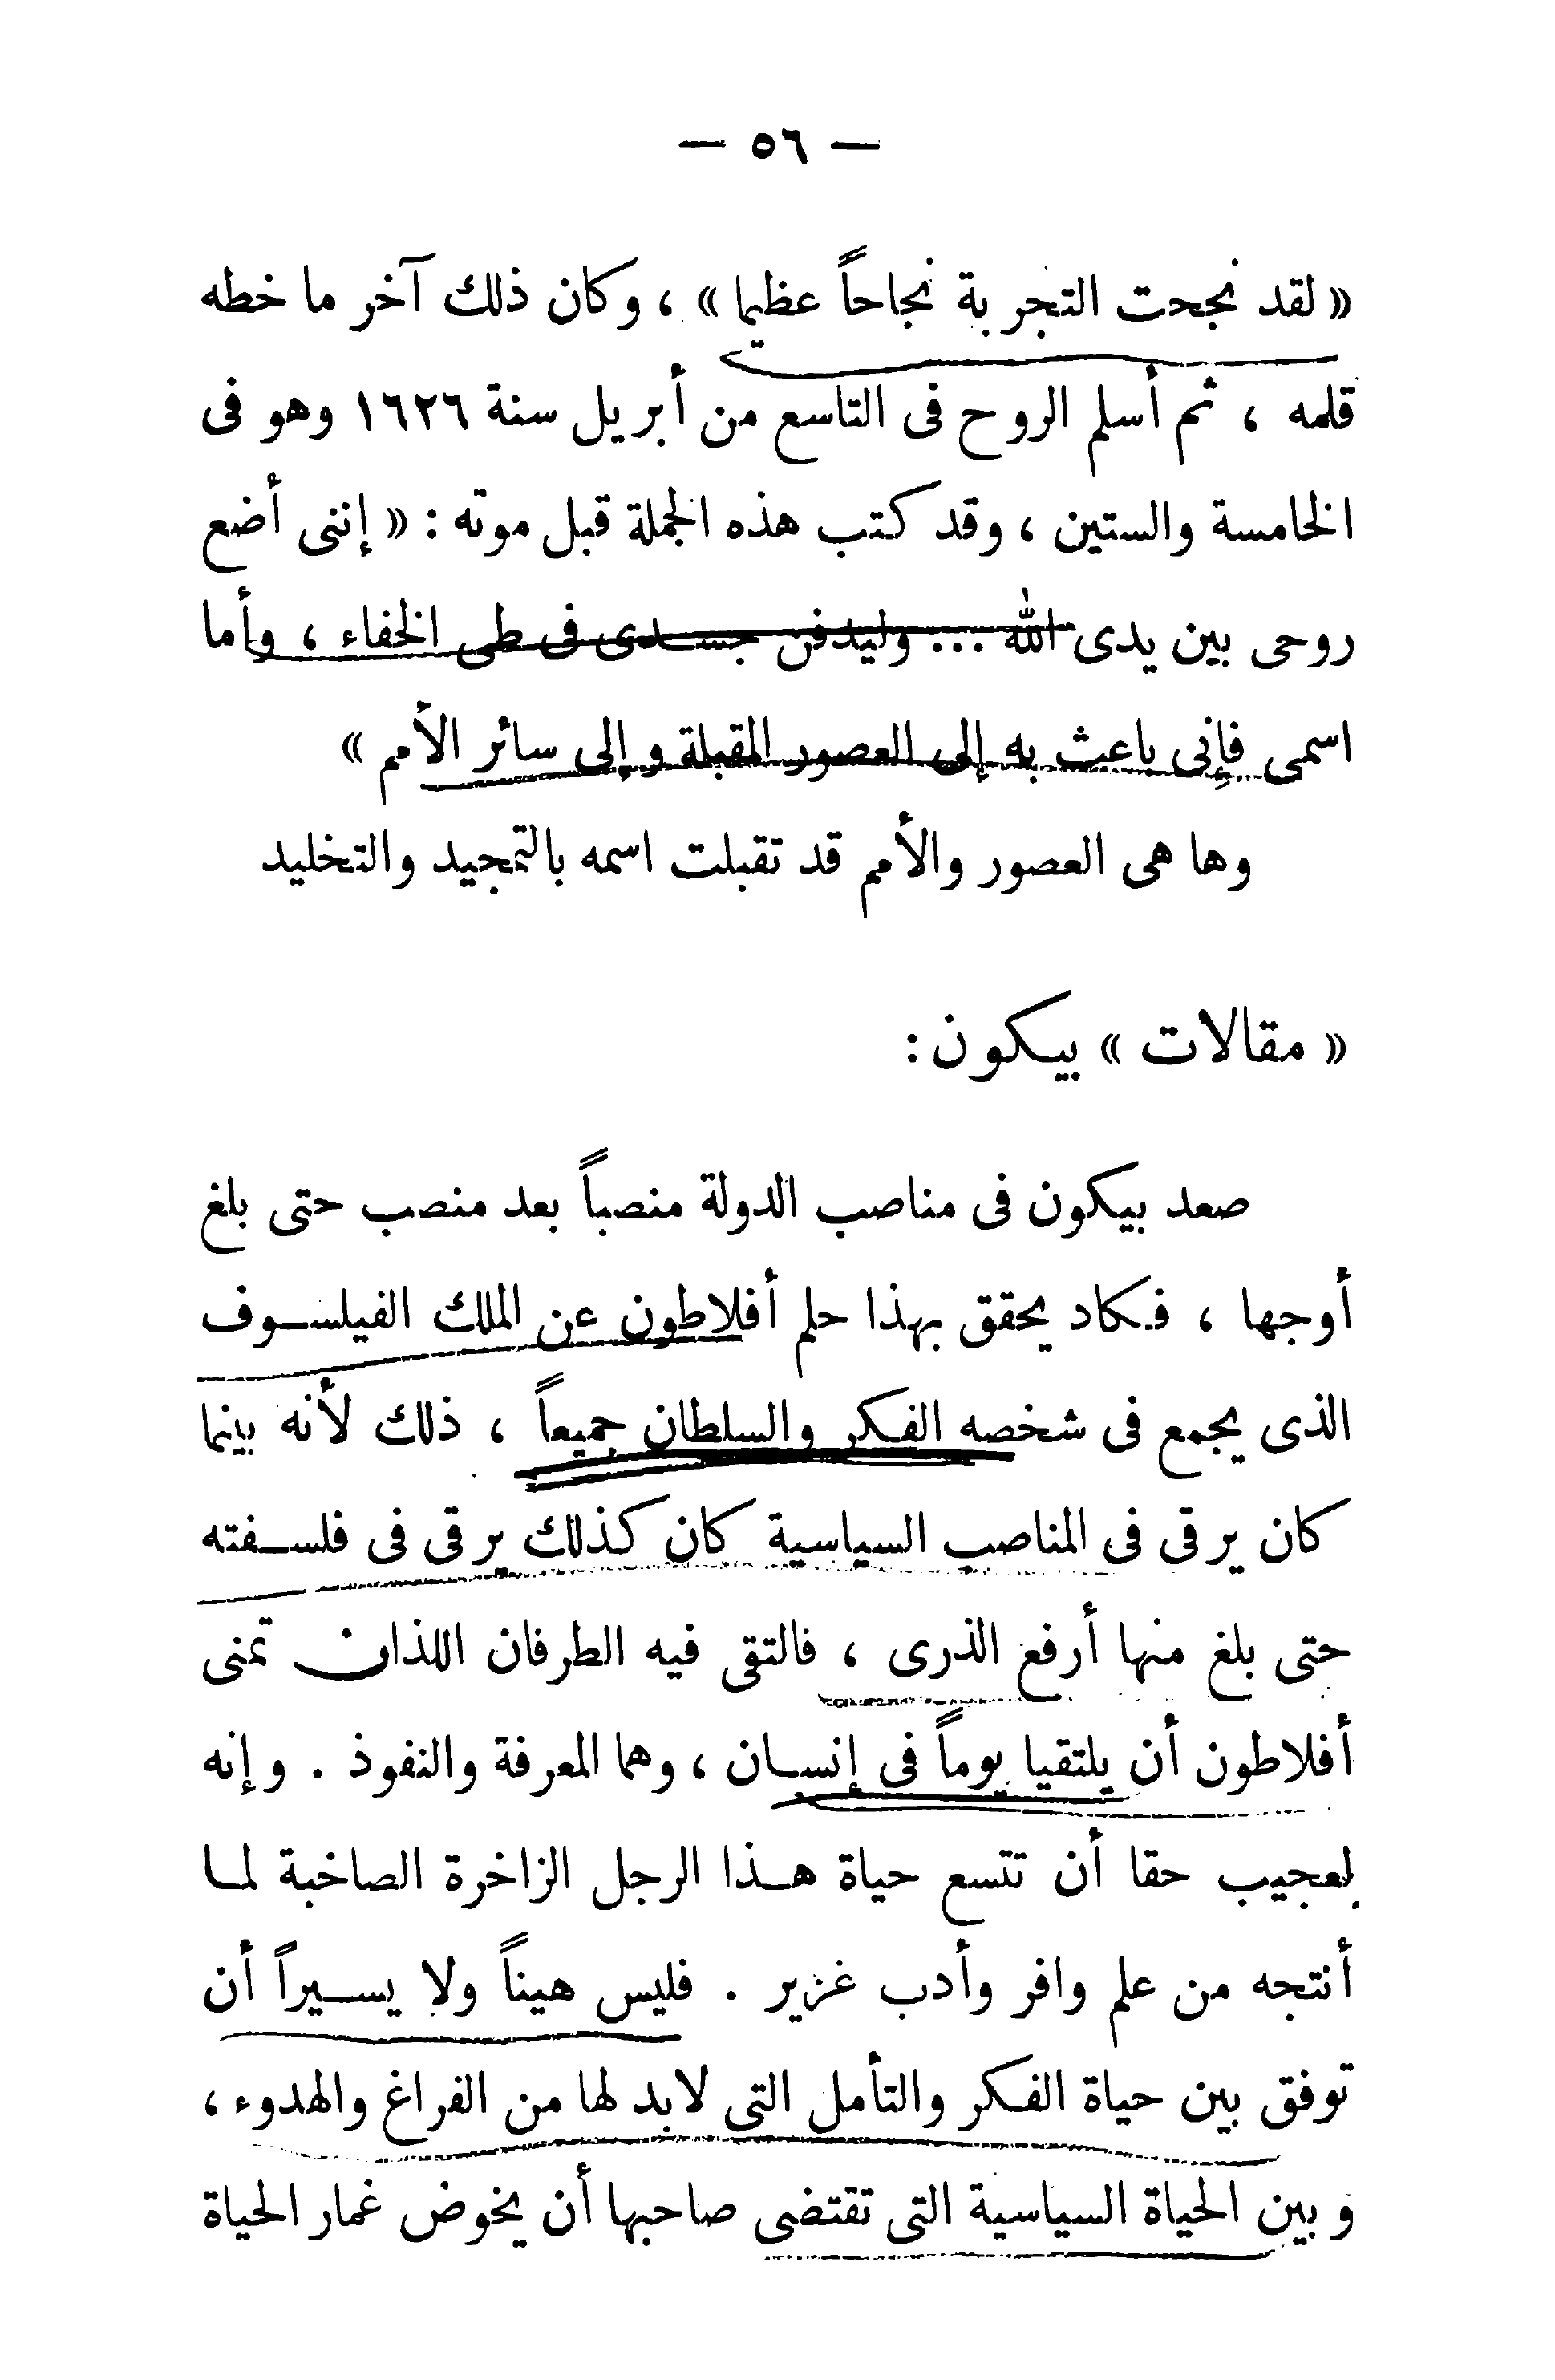 — ٥٦ —
« لقد نجحت التجربة نجاحاً عظيما » ، وكان ذلك آخر ما خطه
قلمه ، ثم أسلم الروح فى التاسع من أبريل سنة ١٦٢٦ وهو فى
الخامسة والستين ، وقد كتب هذه الجملة قبل موته : « إننى أضع
روحى بين يدى الله ... وليدفن جسدى فى طى الخفاء ، وأما
اسمى فإنى باعث به إلى العصور المقبلة وإلى سائر الأمم »
وها هى العصور والأمم قد تقبلت اسمه بالتمجيد والتخليد
« مقالات » بيكون :
صعد بيكون فى مناصب الدولة منصباً بعد منصب حتى بلغ
أوجها ، فكاد يحقق بهذا حلم أفلاطون عن الملك الفيلسوف
الذى يجمع فى شخصه الفكر والسلطان جميعاً ، ذلك لأنه بينما
كان يرقى فى المناصب السياسية كان كذلك يرقى فى فلسفته
حتى بلغ منها أرفع الذرى ، فالتقى فيه الطرفان اللذان تمنى
أفلاطون أن يلتقيا يوماً فى إنسان ، وهما المعرفة والنفوذ . وإنه
لعجيب حقا أن تتسع حياة هذا الرجل الزاخرة الصاخبة لما
أنتجه من علم وافر وأدب غزير . فليس هيناً ولا يسيراً أن
توفق بين حياة الفكر والتأمل التى لابد لها من الفراغ والهدوء ،
وبين الحياة السياسية التى تقتضى صاحبها أن يخوض غمار الحياة